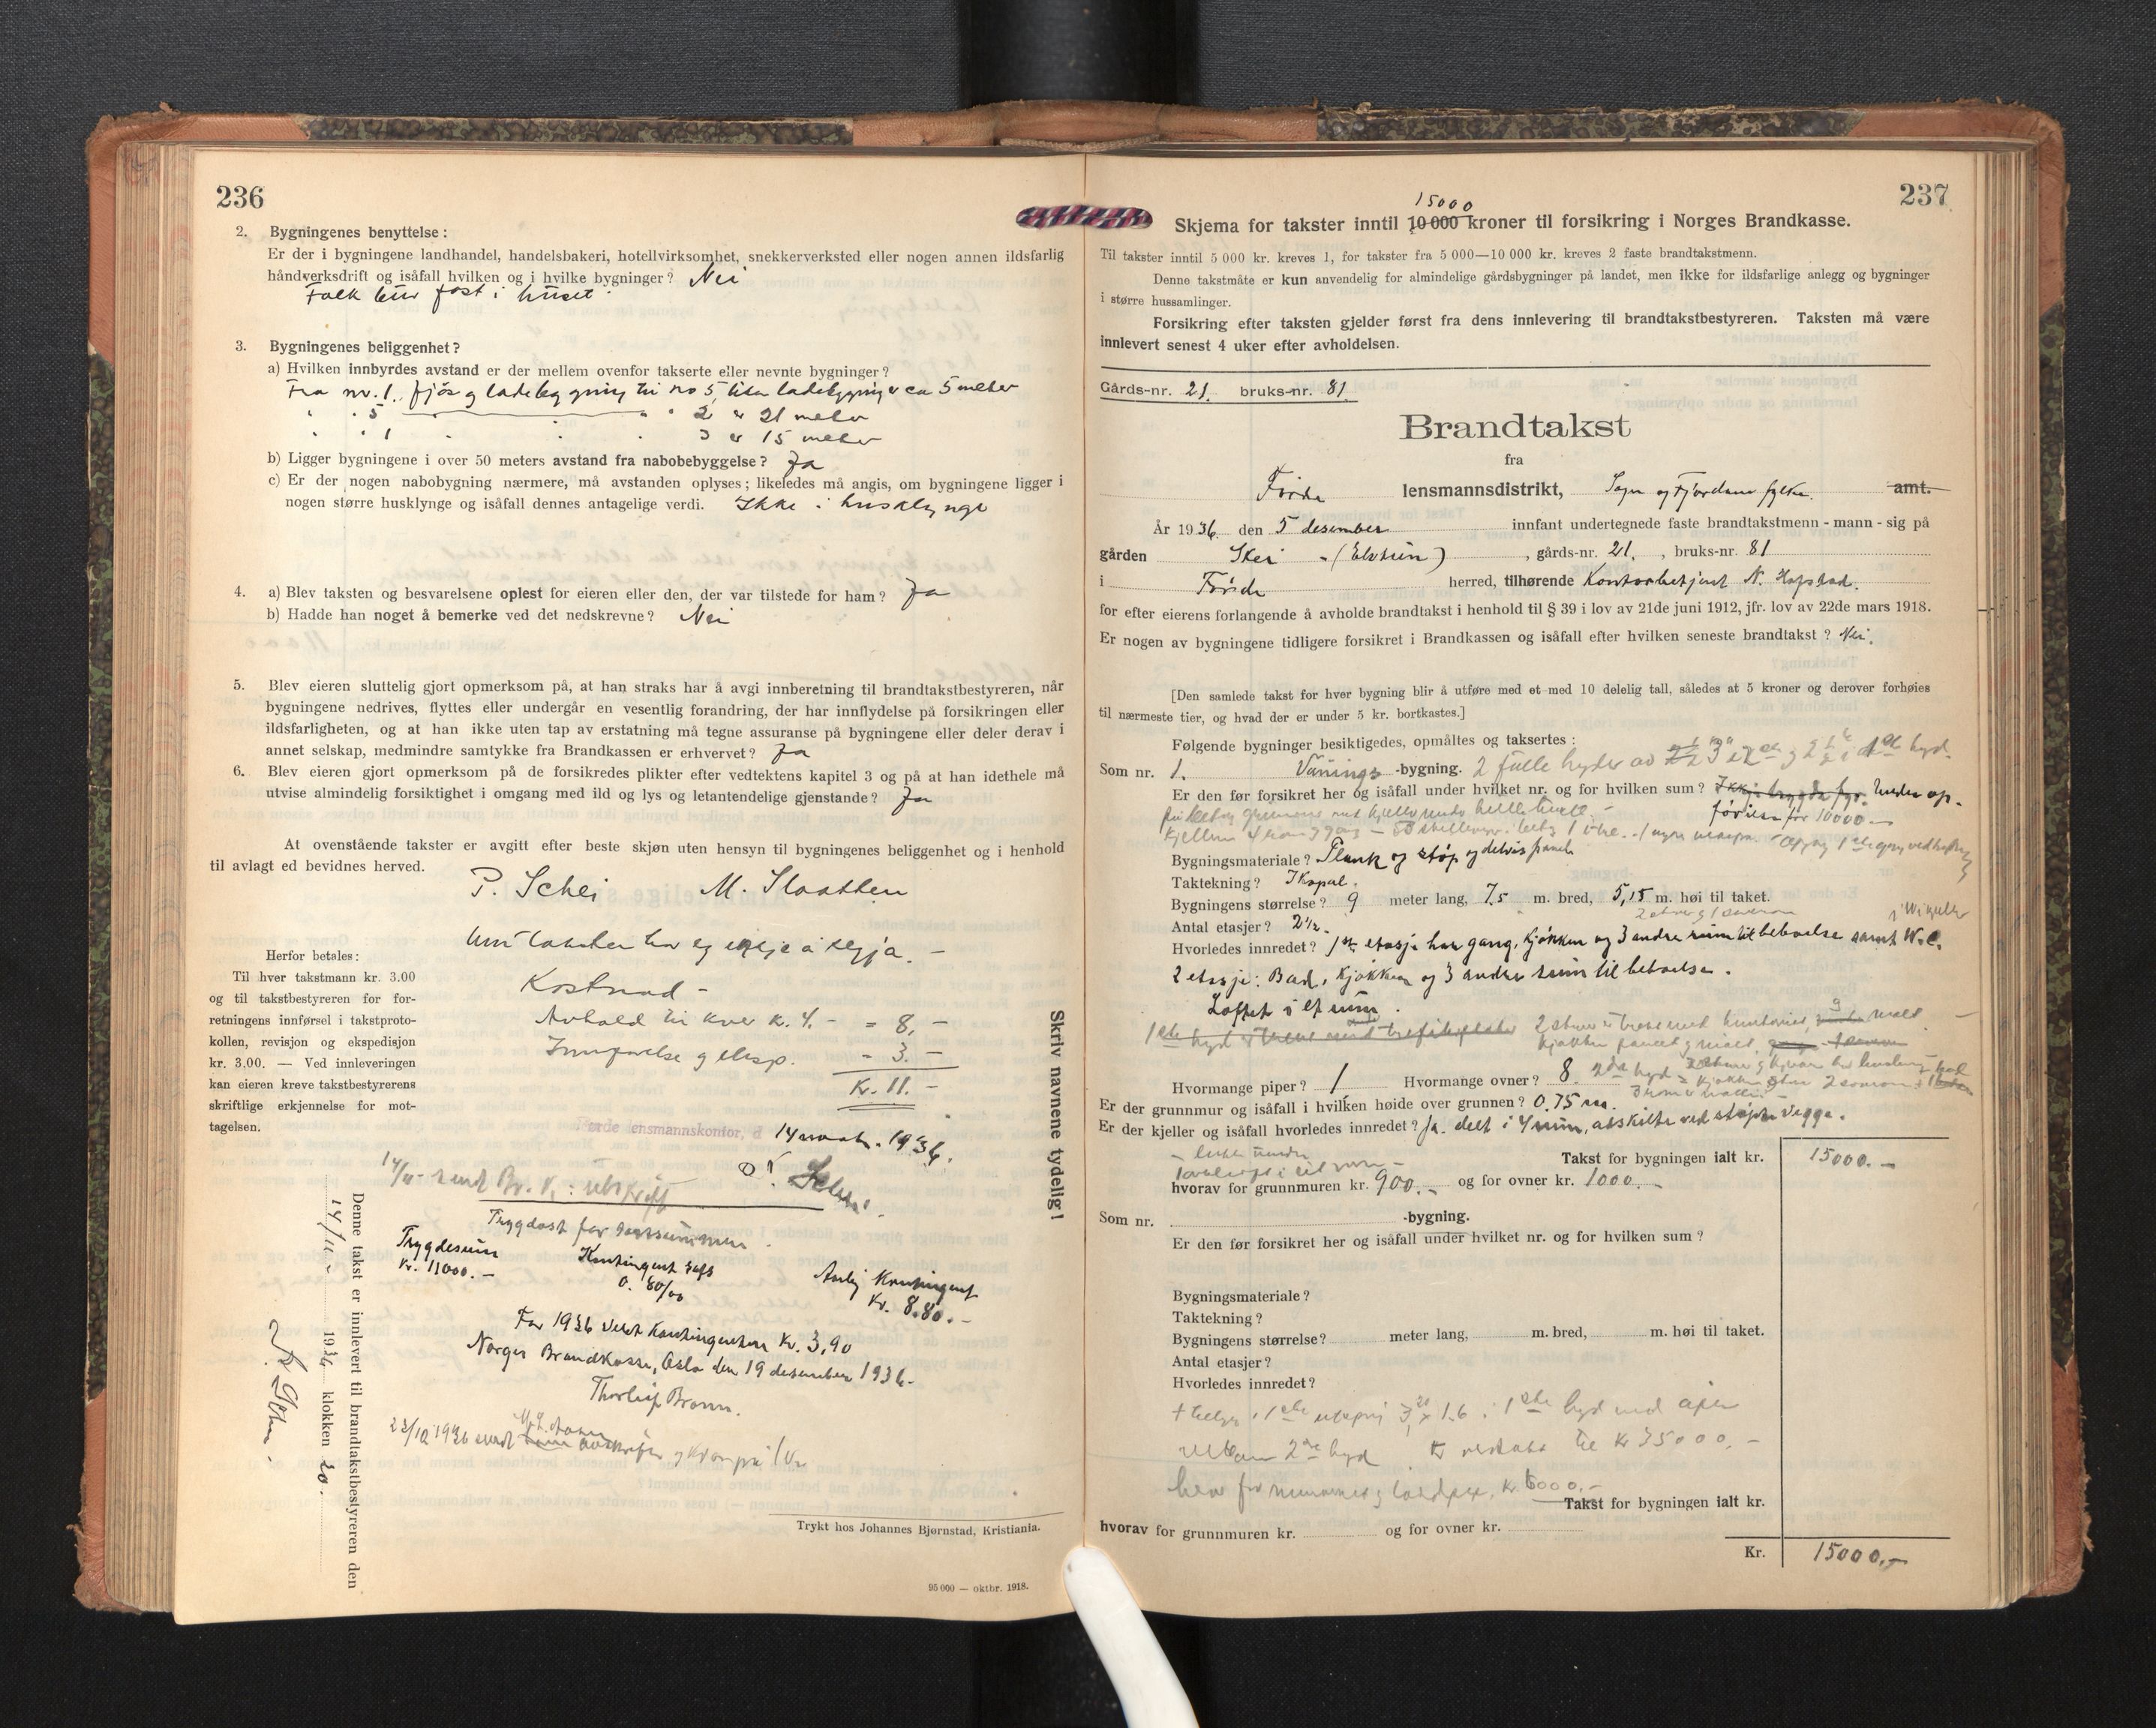 236
2. Bygningenes benyttelse:
Er der i bygningene landhandel, handelsbakeri, hotellvirksomhet, snekkerverksted eller nogen annen ildsfarlig
håndverksdrift og isåfall hvilken og i hvilke bygninger? Nei
Folk bur fast i huset.
3. Bygningenes beliggenhet?
a) Hvilken innbyrdes avstand er der mellem ovenfor takserte eller nevnte bygninger?
Fra nr. 1. fjøs og ladebygning til no 5, liten ladebygning er ca 5 meter
" " 5 " " 2 er 21 meter
" " 1 " " " 3 er 15 meter
b) Ligger bygningene i over 50 meters avstand fra nabobebyggelse? Ja
c) Er der nogen nabobygning nærmere, må avstanden oplyses; likeledes må angis, om bygningene ligger i
nogen større husklynge og isåfall dennes antagelige verdi. Ikke i husklynge
4. a) Blev taksten og besvarelsene oplest for eieren eller den, der var tilstede for ham? Ja
b) Hadde han noget å bemerke ved det nedskrevne? Nei
5. Blev eieren sluttelig gjort opmerksom på, at han straks har å avgi innberetning til brandtakstbestyreren, når
bygningene nedrives, flyttes eller undergår en vesentlig forandring, der har innflydelse på forsikringen eller
ildsfarligheten, og at han ikke uten tap av erstatning må tegne assuranse på bygningene eller deler derav i
annet selskap, medmindre samtykke fra Brandkassen er erhvervet? Ja
6. Blev eieren gjort opmerksom på de forsikredes plikter efter vedtektens kapitel 3 og på at han idethele må
utvise almindelig forsiktighet i omgang med ild og lys og letantendelige gjenstande? Ja
At ovenstående takster er avgitt efter beste skjøn uten hensyn til bygningenes beliggenhet og i henhold
til avlagt ed bevidnes herved.
P. Schei M. Slaatten
Um taksten har eg inkje å segja. -
Herfor betales:
Til hver takstmann kr. 3.00
og til takstbestyreren for for-
retningens innførsel i takstproto-
kollen, revisjon og ekspedisjon
kr. 3.00. — Ved innleveringen
kan eieren kreve takstbestyrerens
skriftlige erkjennelse for mot-
tagelsen.
Kostnad -
Avhald til kver k. 4. - = 8, -
Innførelse og eksp. = 3. -
Kr. 11. -
Førde lensmannskontor, d. 14 1936.
Skriv navnene tydelig!
14/11 - sendt Br. K.: utskrift
Trygdast for
Trygdesum
Kr. 11000. -
Kontingent
0.80/00
Aarleg Kontingent
Kr. 8.80. -
For 1936 vert Kontingenten Kr. 3,90
Norges Brandkasse, Oslo den 19 desember 1936.
Thorleif
23/12 1936 sendt
Denne takst er innlevert til brandtakstbestyreren den
14/11 1936 klokken 20.
Trykt hos Johannes Bjørnstad, Kristiania.
95 000 — oktbr. 1918.
237
15000
Skjema for takster inntil 10 000 kroner til forsikring i Norges Brandkasse.
Til takster inntil 5 000 kr. kreves 1, for takster fra 5 000—10 000 kr. kreves 2 faste brandtakstmenn.
Denne takstmåte er kun anvendelig for almindelige gårdsbygninger på landet, men ikke for ildsfarlige anlegg og bygninger
i større hussamlinger.
Forsikring efter taksten gjelder først fra dens innlevering til brandtakstbestyreren. Taksten må være
innlevert senest 4 uker efter avholdelsen.
Gårds-nr. 21. bruks-nr. 81.
Brandtakst
fra
Førde lensmannsdistrikt, Sogn og Fjordane fylke. amt.
År 1936 den 5 desember innfant undertegnede faste brandtakstmenn - mann - sig på
gården Skei - (Elvtun), gårds-nr. 21., bruks-nr. 81
i Førde herred, tilhørende Kontorbetjent N. Hafstad.
for efter eierens forlangende å avholde brandtakst i henhold til § 39 i lov av 21de juni 1912, jfr. lov av 22de mars 1918.
Er nogen av bygningene tidligere forsikret i Brandkassen og isåfall efter hvilken seneste brandtakst? Nei.
[Den samlede takst for hver bygning blir å utføre med et med 10 delelig tall, således at 5 kroner og derover forhøies
til nærmeste tier, og hvad der er under 5 kr. bortkastes.]
Følgende bygninger besiktigedes, opmåltes og taksertes:
Som nr. 1. Vånings-bygning. 2 fulle høgder
Er den før forsikret her og isåfall under hvilket nr. og for hvilken sum? Ikkje bygda før. Under op-
førelse for 10000.-
Bygningsmateriale? Plank og støp og delvis panel
Taktekning? Ikopal.
Bygningens størrelse? 9 meter lang, 7.5 m. bred, 5,15 m. høi til taket.
Antal etasjer? 2½.
Hvorledes innredet? 1ste etasje har gang, kjøkken og 3 andre rum til beboelse samt W.C.
2 etasje: Bad, kjøkken og 3 andre rum til beboelse.
Loftet i et rum.
Hvormange piper? 1 Hvormange ovner? 8.
Er der grunnmur og isåfall i hvilken høide over grunnen? 0.75 m.
Er der kjeller og isåfall hvorledes innredet? Ja. delt i 4 rum, atskilte ved støpte vegge.
Takst for bygningen ialt kr. 15000.-
hvorav for grunnmuren kr. 900.- og for ovner kr. 1000.-
Som nr. -bygning.
Er den før forsikret her og isåfall under hvilket nr. og for hvilken sum?
Bygningsmateriale?
Taktekning?
Bygningens størrelse? meter lang, m. bred, m. høi til taket.
Antal etasjer?
Hvorledes innredet?
til Kr 35000,-
Takst for bygningen ialt kr.
hvorav for grunnmuren kr. og for ovner kr.
Kr. 15000,-